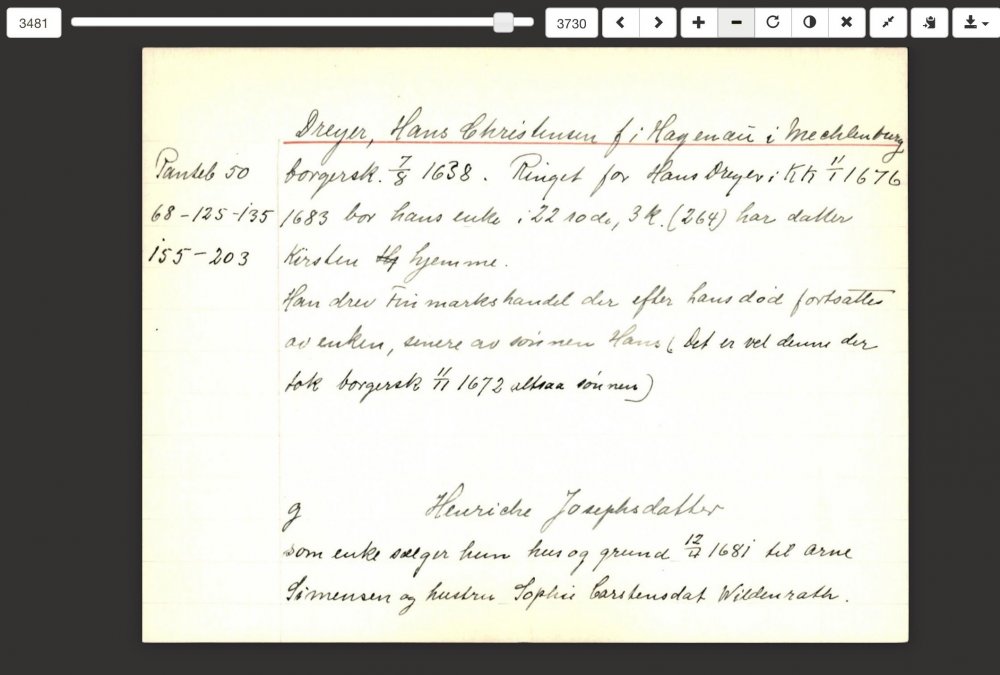 3481
3730
Dreyer, Hans Christensen f i Hagenau i Mechlenburg
Panteb 50
borgersk. 7/8 1638. Ringet for Hans Dreyer i KK 11/1 1676
68-125-135
1683 bor hans enke i 22 rode, 3 K. (264) har datter
155-203
Kirsten hjemme.
Han drev Finmarkshandel der efter hans død fortsattes
av enken, senere av sønnen Hans (Det er vel denne der
tok borgersk 11/11 1672 altsaa sønnen)
g Henriche Josephsdatter
som enke sælger hun hus og grund 1681 til Arne
Simensen og hustru Sophie Carstensdat Wildenrath.